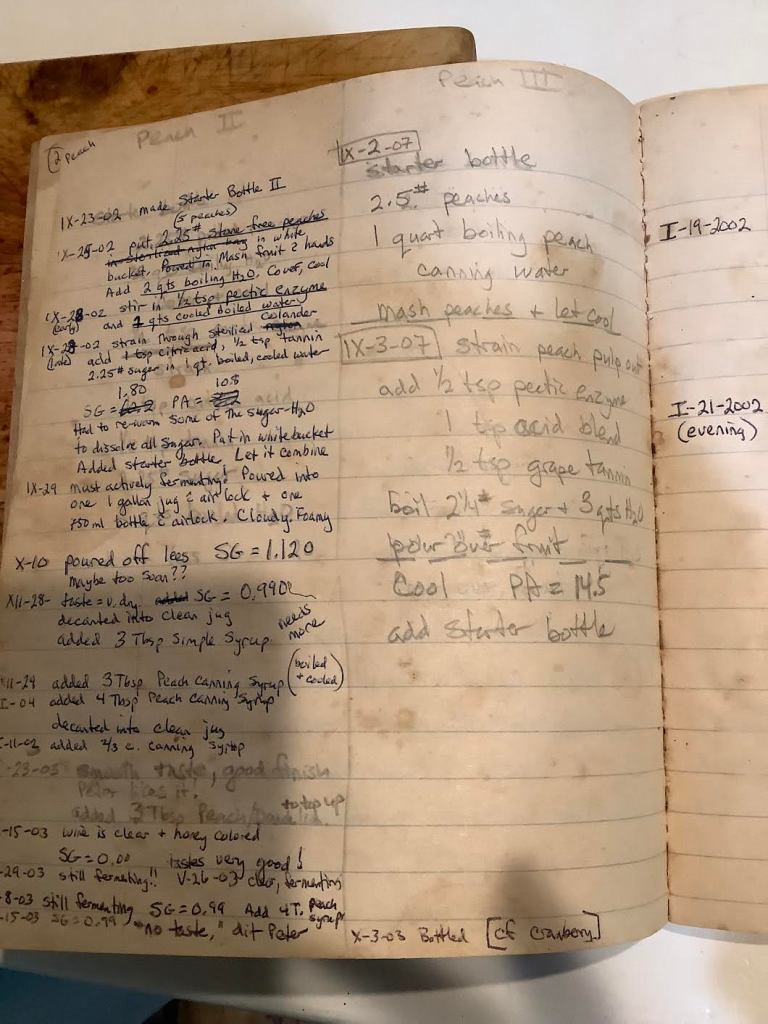 (2 Peach
Peach II
IX-23-02 made Starter Bottle II
(5 peaches)
put 2.25# stone free peaches
in sterilized nylon bag in white
bucket. Poured in. Mash fruit c hands
Add 2 qts boiling H₂O. Cover, cool
IX-28-02 stir in ½ tsp pectic enzyme
(early) and 1 qts cooled boiled water
IX-28-02 strain through sterilized colander
(late) add 1 tsp citric acid, ½ tsp tannin
2.25# sugar in 1 qt. boiled, cooled water
1.80 10.5
SG = PA =
Had to re-warm some of the sugar-H₂O
to dissolve all sugar. Put in white bucket
Added starter bottle. Let it combine
IX-29 must actively fermenting! Poured into
one 1 gallon jug c air lock + one
750 ml bottle c airlock. Cloudy. Foamy
X-10 poured off lees SG = 1.120
maybe too soon??
XII-28- taste = v. dry. added SG = 0.990
decanted into clean jug
added 3 Tbsp Simple Syrup. needs more
XII-29 added 3 Tbsp Peach Canning Syrup (boiled + cooled)
I-04 added 4 Tbsp Peach Canning Syrup
decanted into clean jug
added ⅔ c. canning syrup
-23-03 smooth taste, good finish
Peter likes it!
added 3 Tbsp Peach to top up
-15-03 wine is clear + honey colored
SG = 0.00 tastes very good!
-29-03 still fermenting!! V-26-03 clear, fermenting
-8-03 still fermenting SG = 0.99 Add 4 T. peach syrup
-15-03 SG = 0.99 "no taste," dit Peter
X-3-03 Bottled [cf Cranberry]
Peach III
IX-2-07
starter bottle
2.5# peaches
1 quart boiling peach
canning water
mash peaches + let cool
IX-3-07 strain peach pulp out
add ½ tsp pectic enzyme
1 tsp acid blend
½ tsp grape tannin
boil 2¼# sugar + 3 qts H₂O
pour over fruit
Cool PA = 14.5
add starter bottle
I-19-2002
I-21-2002
(evening)